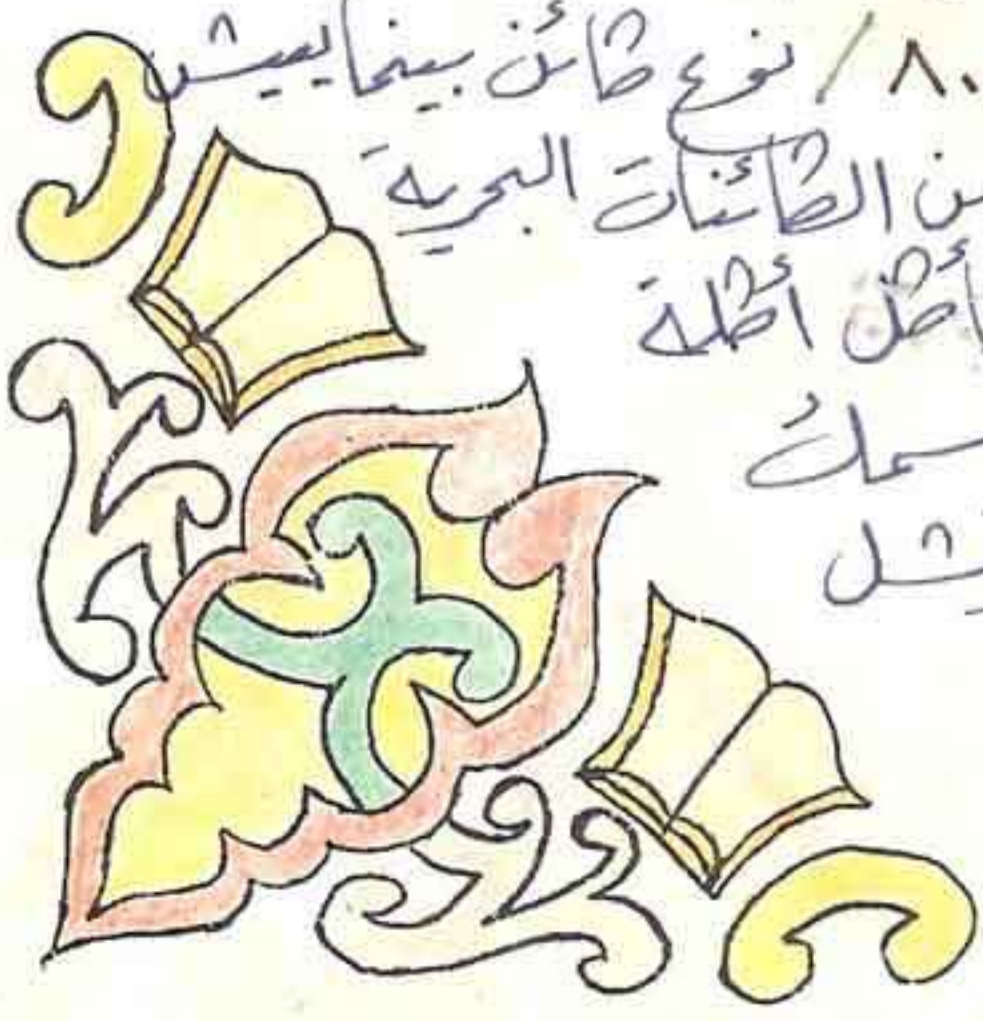 ٨٠ / نوع كائن بينما يعيش
من الكائنات البحرية
أكل أكلة
سمك